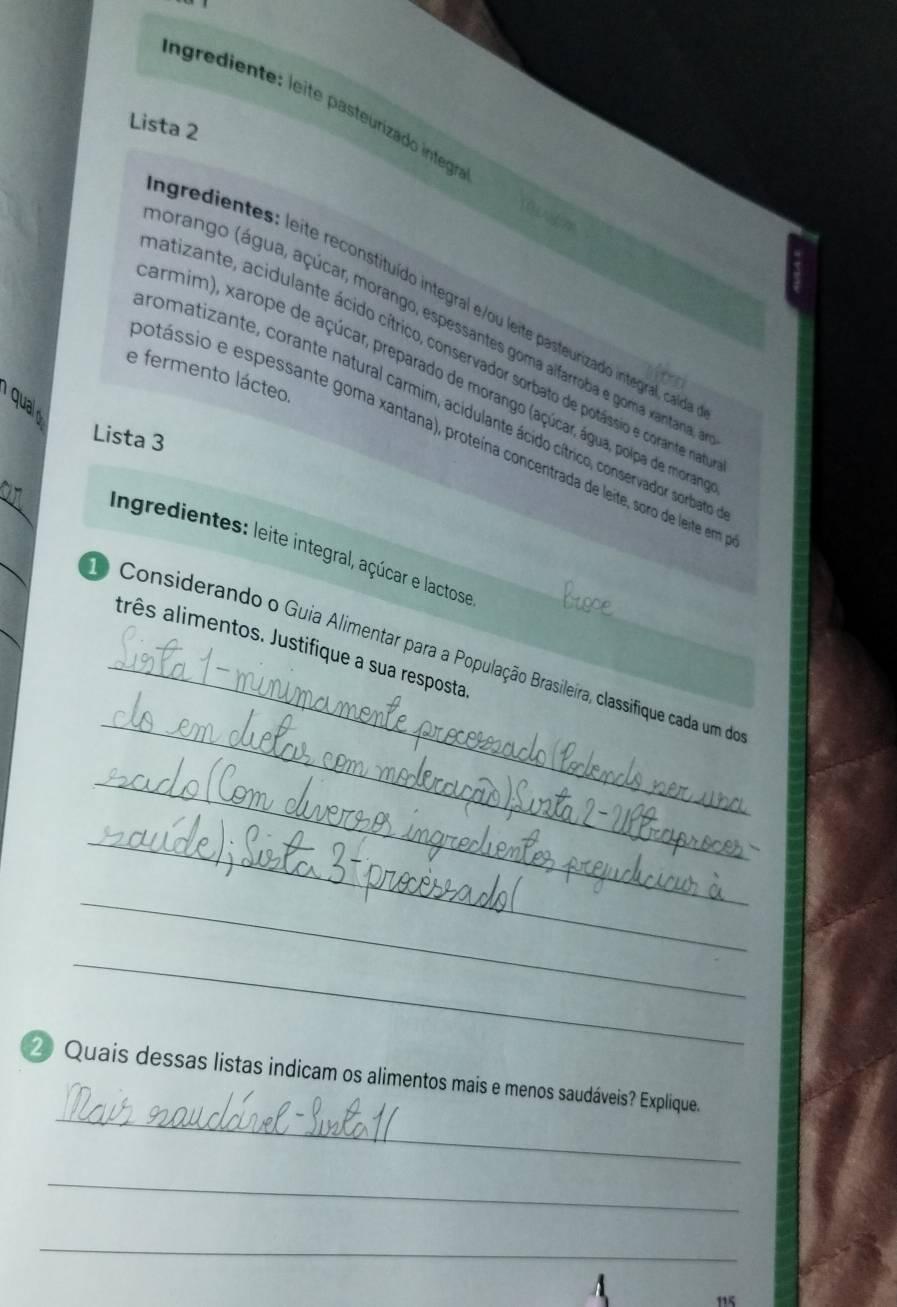 Ingrediente: leite pasteurizado integral.
Lista 2
Ingredientes: leite reconstituído integral e/ou leite pasteurizado integral, calda de
morango (água, açúcar, morango, espessantes goma alfarroba e goma xantana, aro-
matizante, acidulante ácido cítrico, conservador sorbato de potássio e corante natural
carmim), xarope de açúcar, preparado de morango (açúcar, água, polpa de morango,
aromatizante, corante natural carmim, acidulante ácido cítrico, conservador sorbato de
potássio e espessante goma xantana), proteína concentrada de leite, soro de leite em pó
e fermento lácteo.
n qual
Lista 3
Ingredientes: leite integral, açúcar e lactose.
1 Considerando o Guia Alimentar para a População Brasileira, classifique cada um dos
três alimentos. Justifique a sua resposta.
Lista 1-minimamente processado (Podendo ser usa
do em dietas com moderação), Lista 2-ultraproces-
sado (Com diversos ingredientes prejudiciais à
saúde); Lista 3-processado(
2 Quais dessas listas indicam os alimentos mais e menos saudáveis? Explique.
Mais saudável-Lista 1(
115